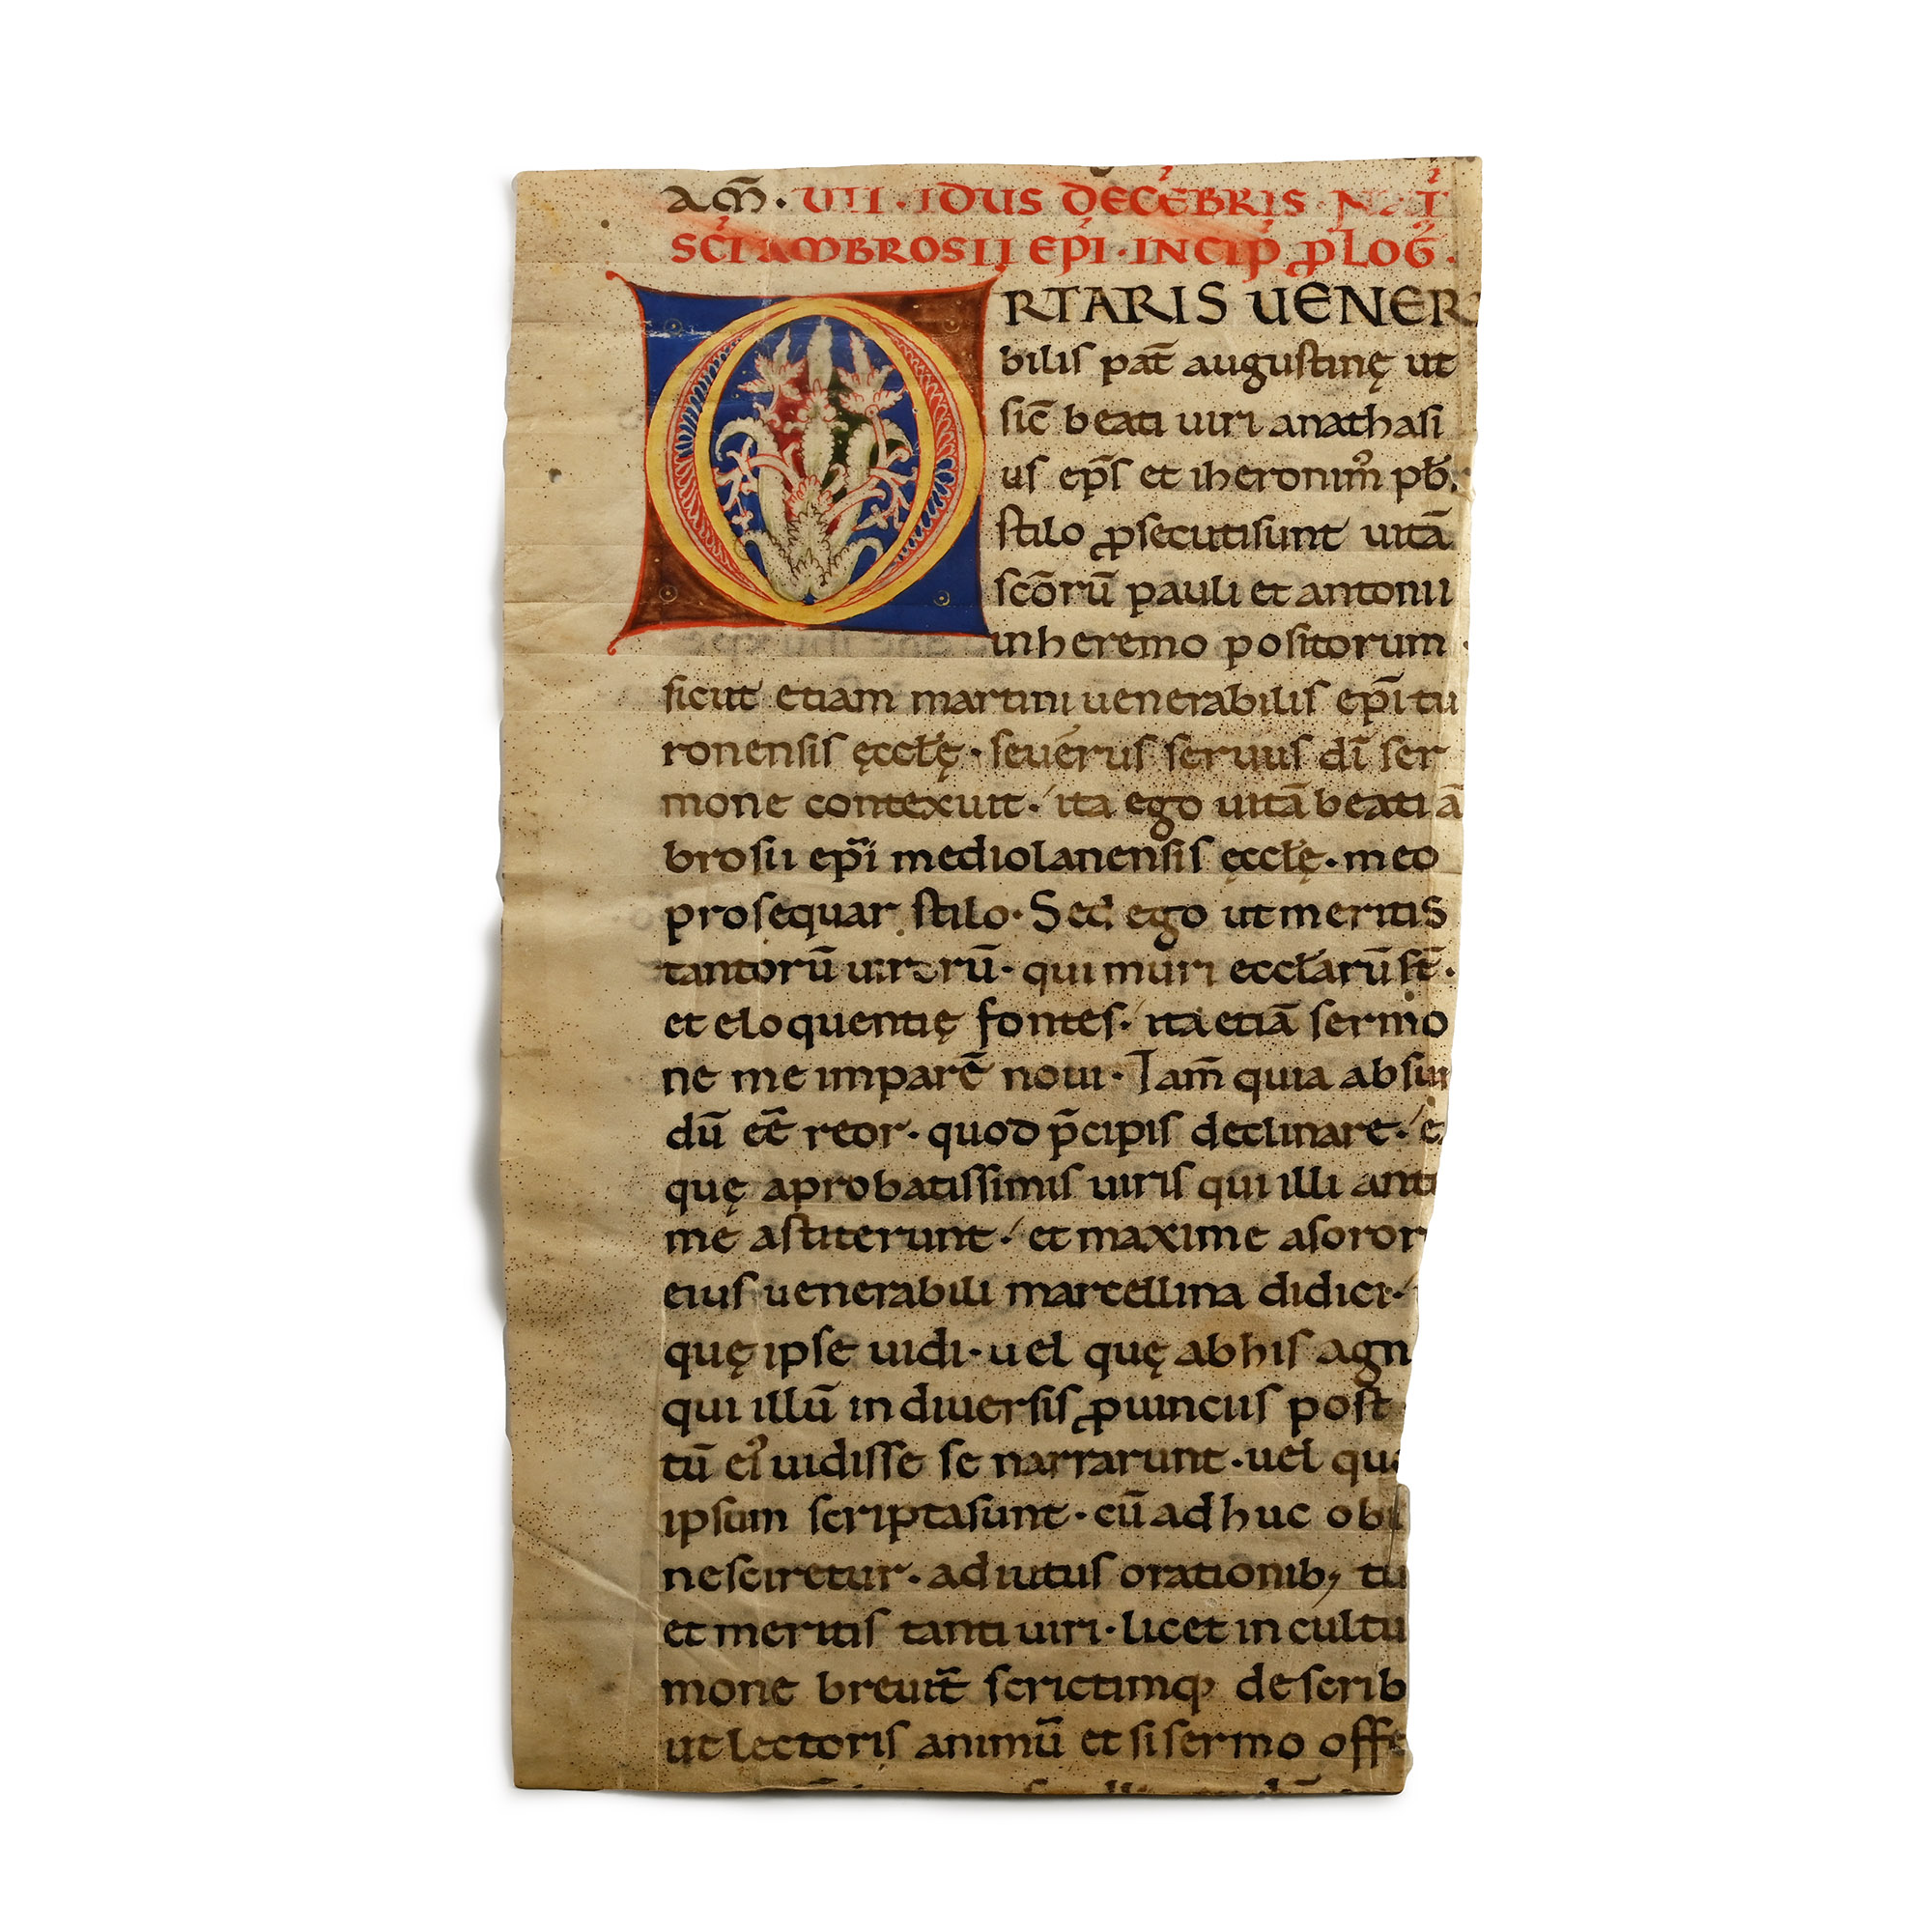 AM̄. VII. IDUS DECEBRIS NAT
SC̄I AMBROSII EP̄I. INCIP̄ PLOḠ.
ORTARIS UENER
bilis pat̄ augustinę ut
sic̄ beati uiri anathasi
us ep̄s et iheronim᾽ pb̄r
stilo ꝓsecuti sunt uitā
sc̄ōrū pauli et antonii
in heremo positorum
sicut etiam martini uenerabilis ep̄i tu
ronensis ęccl̄ę. seuerus seruus dī ser
mone contexuit. ita ego uitā beati ā
brosii ep̄i mediolanensis ęccl̄ę. meo
prosequar stilo. Sed ego ut meritis
tantorū uirorū. qui muri eccl̄arū st̄.
et eloquentię fontes. ita etiā sermo
ne me imparē noui. Tam̄ quia absur
dū eē̄ reor. quod p̄cipis declinare. e
quę a probatissimis uiris qui illi ante
me astiterunt. et maxime a soror
eius uenerabili marcellina didici.
quę ipse uidi. uel quę ab his agn
qui illū in diuersis ꝓuinciis post
tū ei᾽ uidisse se narrarunt. uel que
ipsum scripta sunt. cū adhuc obi
nesciretur. adiutus orationib; tu
et meritis tanti uiri. licet in cultu
mone breuit̄ scrictimq; describ
ut lectoris animū et si sermo offe